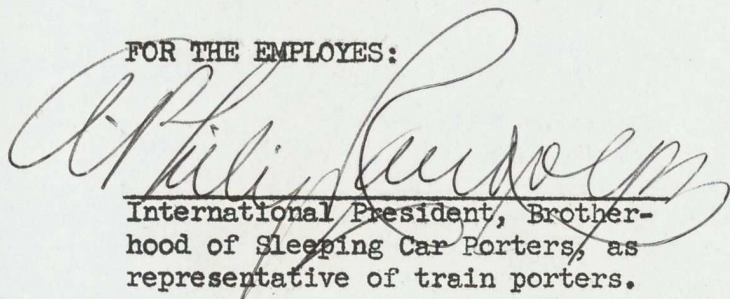 FOR THE EMPLOYES:
A. Philip Randolph
International President, Brother-
hood of Sleeping Car Porters, as
representative of train porters.